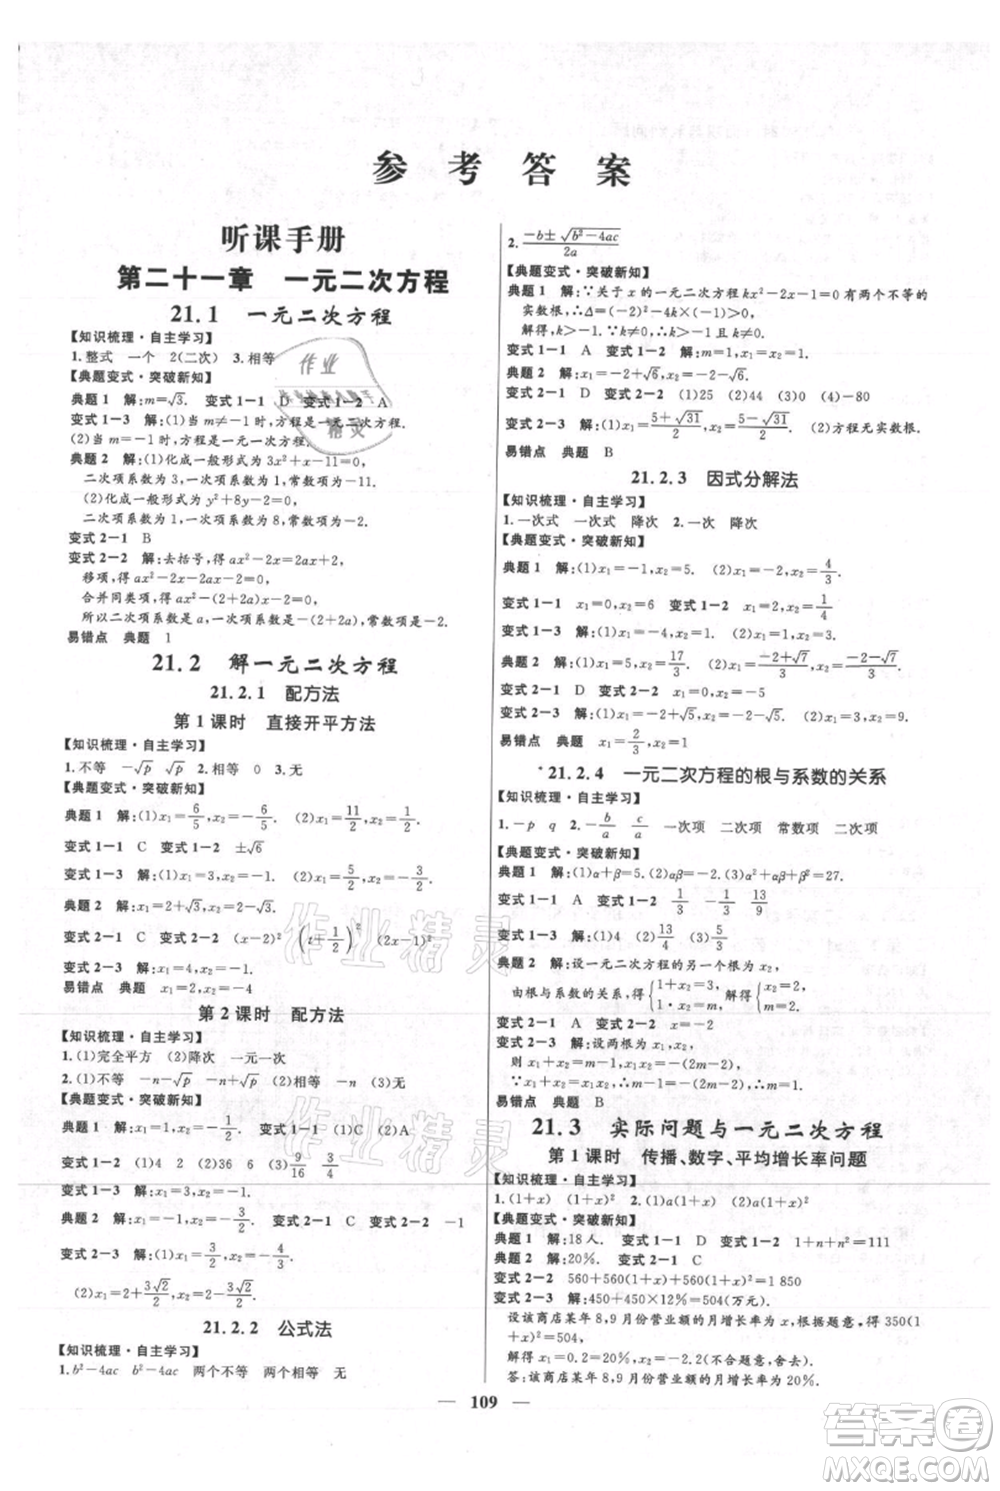 参考答案
听课手册
第二十一章 一元二次方程
21.1 一元二次方程
【知识梳理·自主学习】
1.整式 一个 2(二次) 3.相等
【典题变式·突破新知】
典题1 解:m=√3. 变式1-1 D 变式1-2 A
变式1-3 解:(1)当m≠-1时,方程是一元二次方程.
(2)当m=-1时,方程是一元一次方程.
典题2 解:(1)化成一般形式为
二次项系数为3,一次项系数为1,常数项为-2.
(2)化成一般形式为y²+8y-2=0,
二次项系数为1,一次项系数为8,常数项为-2.
变式2-1 B
变式2-2 解:去括号,得ax²-2x=2ax-a,
移项,得ax²-2x-2ax+a=0,
合并同类项,得ax²-(2+2a)x+a=0,
所以二次项系数是a,一次项系数是-(2+2a),常数项是a.
易错点 典题 1
21.2 解一元二次方程
21.2.1 配方法
第1课时 直接开平方法
【知识梳理·自主学习】
1.不等 -√p √p 2.相等 0 3.无
【典题变式·突破新知】
典题1 解:(1)x₁=6/5,x₂=-6/5. (2)x₁=11/2,x₂=-11/2.
变式1-1 C 变式1-2 ±√6
变式1-3 解:(1)x₁=3,x₂=-3. (2)x₁=5/2,x₂=-5/2.
典题2 解:x₁=2+√3,x₂=2-√3.
变式2-1 D 变式2-2 (x-2)² (t+1/2)² (2x-1)²
变式2-3 解:x₁=4,x₂=-2.
易错点 典题 x₁=2,x₂=-4
第2课时 配方法
【知识梳理·自主学习】
1.(1)完全平方 (2)降次 一元一次
2.(1)不等 -n-√p -n+√p (2)相等 -n (3)无
【典题变式·突破新知】
典题1 解:x₁=1,x₂=-1/2. 变式1-1 (1)C (2)A
变式1-2 (1)16 4 (2)36 6 (3)9/16 3/4
变式1-3 解:x₁=3,x₂=-1.
典题2 解:x₁=-1,x₂=-3/2. 变式2-1 C 变式2-2 -1
变式2-3 解:(1)x₁=3/2,x₂=-3/2.
(2)x₁=2+3√2/2,x₂=2-3√2/2.
21.2.2 公式法
【知识梳理·自主学习】
1.b²-4ac 两个不等 两个相等 无
2. (-b±√(b²-4ac))/2a
【典题变式·突破新知】
典题1 解:∵关于x的一元二次方程kx²-2x-1=0有两个不等的
实数根,∴Δ=(-2)²-4k×(-1)>0,
解得,k>-1,且k≠0.
变式1-1 A 变式1-2 解:m=1,
典题2 解:
变式2-1 D 变式2-2 (1)25 (2)44
变式2-3 解:(1)x₁=(5+√31)/2,x₂=(5-√31)/2. (2)方程无实数根.
易错点 典题 B
21.2.3 因式分解法
【知识梳理·自主学习】
1.一次式 一次式 降次 2.一次 降次
【典题变式·突破新知】
典题1 解:(1)x₁=0,x₂=5. (2)x₁=2,x₂=4/3.
变式1-1 (1)x₁=0,x₂=6 (2)x₁=2,x₂=1/4
变式1-2 解:(1)x₁=-4,x₂=1.
典题2 解:(1)x₁=5,x₂=17/3. (2)x₁=(-2+√7)/3,x₂=(-2-√7)/3.
变式2-1 D 变式2-2 x₁=4,x₂=-1
变式2-3 解: (2)x₁=5,x₂=9.
易错点 典题 x₁=2/3,x₂=1
*21.2.4 一元二次方程的根与系数的关系
【知识梳理·自主学习】
1.-p q 2.-b/a c/a 一次项 二次项 常数项 二次项
【典题变式·突破新知】
典题1 解:(1)α+β=5. (2)αβ=-1. (3)α²+αβ+β²=27.
变式1-2 1/3 -1/3 -13/9
变式1-3 解:(1)4 (2)13/4 (3)5/3
典题2 解:设一元二次方程的另一个根为x₂,
由根与系数的关系,得{1+x₂=3, 1·x₂=m, 解得{x₂=2, m=2.
变式2-1 A 变式2-2 x=-2
变式2-3 解:设方程的两根为x₁,x₂,
则x₁+x₂=m-1,x₁x₂=m-1.
易错点 典题 B
21.3 实际问题与一元二次方程
第1课时 传播、数字、平均增长率问题
【知识梳理·自主学习】
1.(1+x) (1+x)² 2.(1)a(1+x) (2)a(1+x)²
【典题变式·突破新知】
典题1 解:18人. 变式1-1 D 变式1-2 1+n+n²=111
典题2 解:20%. 变式2-1 C
变式2-2 560+560(1+x)+560(1+x)²=1 850
变式2-3 解:450+450×12%=504(万元).
设该商店某年8,9月份营业额的月增长率为x,依题意,得350(1
+x)²=504,
解得x₁=0.2=20%,x₂=-2.2(不符合题意,舍去).
答:该商店某年8,9月份营业额的月增长率为20%.
109
作业精灵
作业精灵
作业精灵
答案圈
MXQE.COM